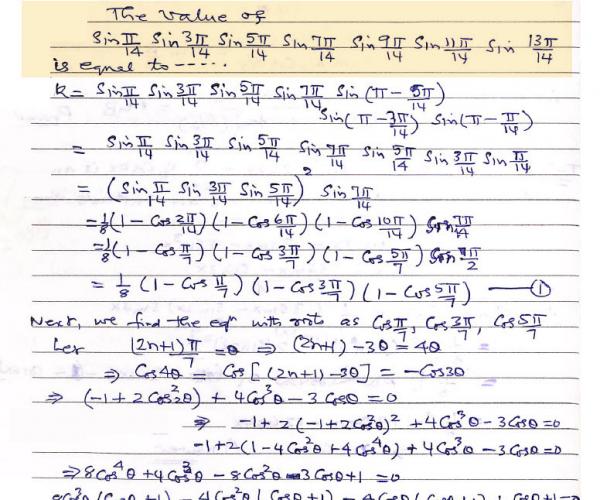 The value of
Sin π/14 Sin 3π/14 Sin 5π/14 Sin 7π/14 Sin 9π/14 Sin 11π/14 Sin 13π/14
is equal to -----.
k = Sin π/14 Sin 3π/14 Sin 5π/14 Sin 7π/14 Sin (π - 5π/14)
Sin(π - 3π/14) Sin(π - π/14)
= Sin π/14 Sin 3π/14 Sin 5π/14 Sin 7π/14 Sin 5π/14 Sin 3π/14 Sin π/14
= (Sin π/14 Sin 3π/14 Sin 5π/14)² Sin 7π/14
= 1/8 (1 - Cos 2π/14) (1 - Cos 6π/14) (1 - Cos 10π/14) Sin 7π/14
= 1/8 (1 - Cos π/7) (1 - Cos 3π/7) (1 - Cos 5π/7) Sin π/2
= 1/8 (1 - Cos π/7) (1 - Cos 3π/7) (1 - Cos 5π/7) —— ①
Next, we find the eqn with roots as Cos π/7, Cos 3π/7, Cos 5π/7
Let (2n+1)π/7 = θ ⇒ (2n+1) - 3θ = 4θ
⇒ Cos 4θ = Cos [(2n+1) - 3θ] = - Cos 3θ
⇒ (-1 + 2 Cos² 2θ) + 4 Cos³ θ - 3 Cos θ = 0
⇒ -1 + 2 (-1 + 2 Cos² θ)² + 4 Cos³ θ - 3 Cos θ = 0
-1 + 2 (1 - 4 Cos² θ + 4 Cos⁴ θ) + 4 Cos³ θ - 3 Cos θ = 0
⇒ 8 Cos⁴ θ + 4 Cos³ θ - 8 Cos² θ - 3 Cos θ + 1 = 0